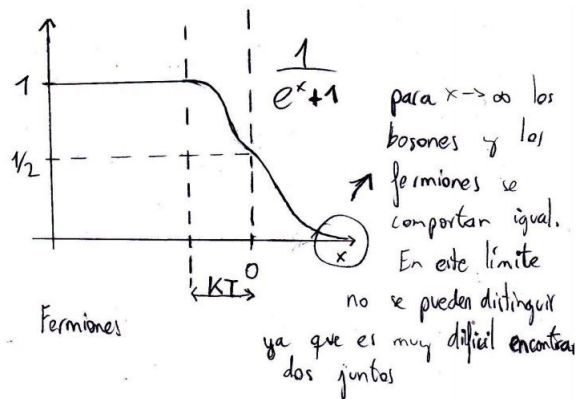 1
1/2
1
e^x+1
0
x
KT
Fermiones
para x→∞ los
bosones y los
fermiones se
comportan igual.
En este límite
no se pueden distinguir
ya que es muy difícil encontrar
dos juntos